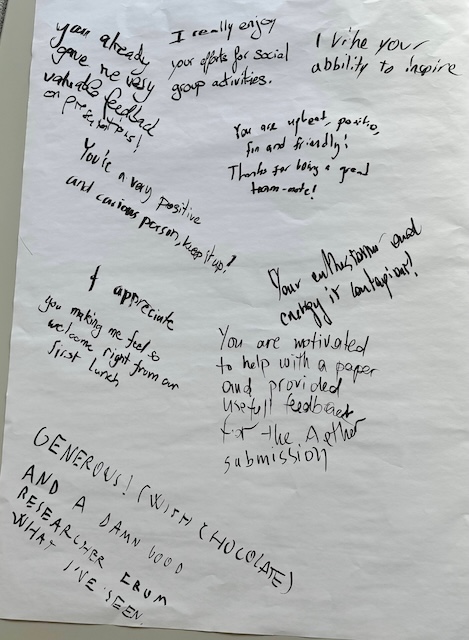 you already
gave me very
valuable feedback
on presentations!
I really enjoy
your efforts for social
group activities.
I like your
abbility to inspire
You are upbeat, positiv,
fun and friendly!
Thanks for being a great
team-mate!
You're a very positive
and curious person, keep it up!
Your enthusiasm and
energy is contagious!
I appreciate
you making me feel so
welcome right from our
first lunch
You are motivated
to help with a paper
and provided
usefull feedback
for the Aether
submission
GENEROUS! (WITH CHOCOLATE)
AND A DAMN GOOD
RESEARCHER FROM
WHAT I'VE SEEN.